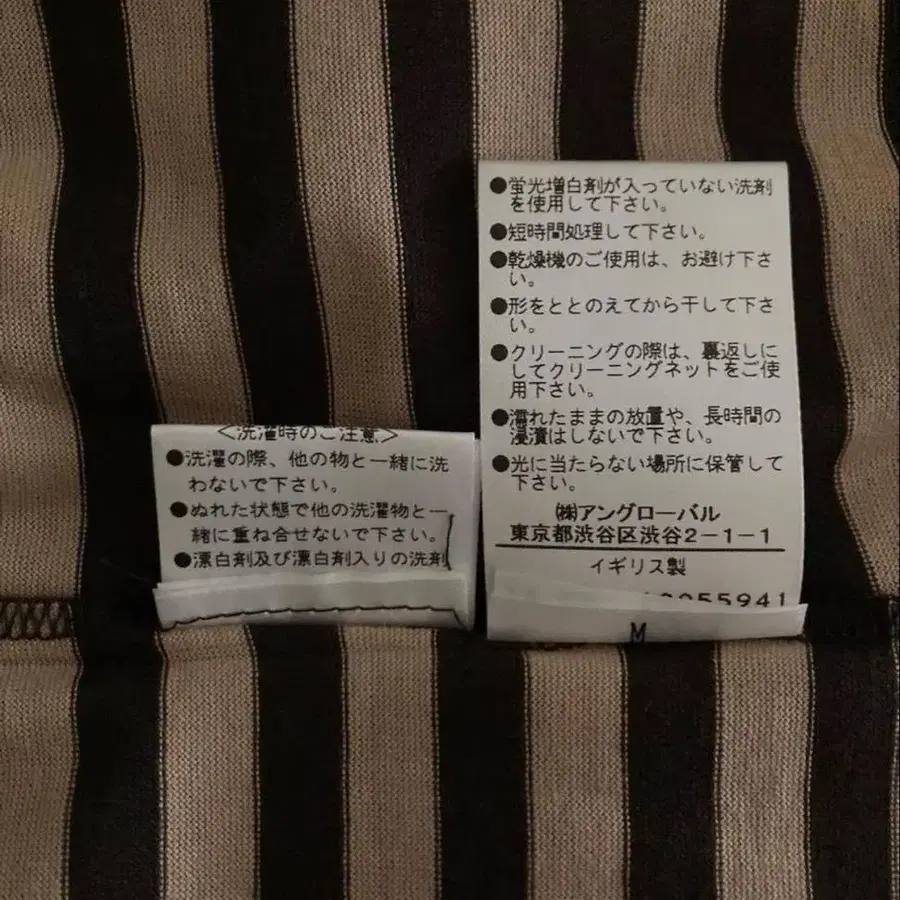 <洗濯時のご注意>
●洗濯の際、他の物と一緒に洗
わないで下さい。
●ぬれた状態で他の洗濯物と一
緒に重ね合せないで下さい。
●漂白剤及び漂白剤入りの洗剤
●蛍光増白剤が入っていない洗剤
を使用して下さい。
●短時間処理して下さい。
●乾燥機のご使用は、お避け下さ
い。
●形をととのえてから干して下さ
い。
●クリーニングの際は、裏返しに
してクリーニングネットをご使
用下さい。
●濡れたままの放置や、長時間の
浸漬はしないで下さい。
●光に当たらない場所に保管して
下さい。
㈱アングローバル
東京都渋谷区渋谷2-1-1
イギリス製
0055941
M